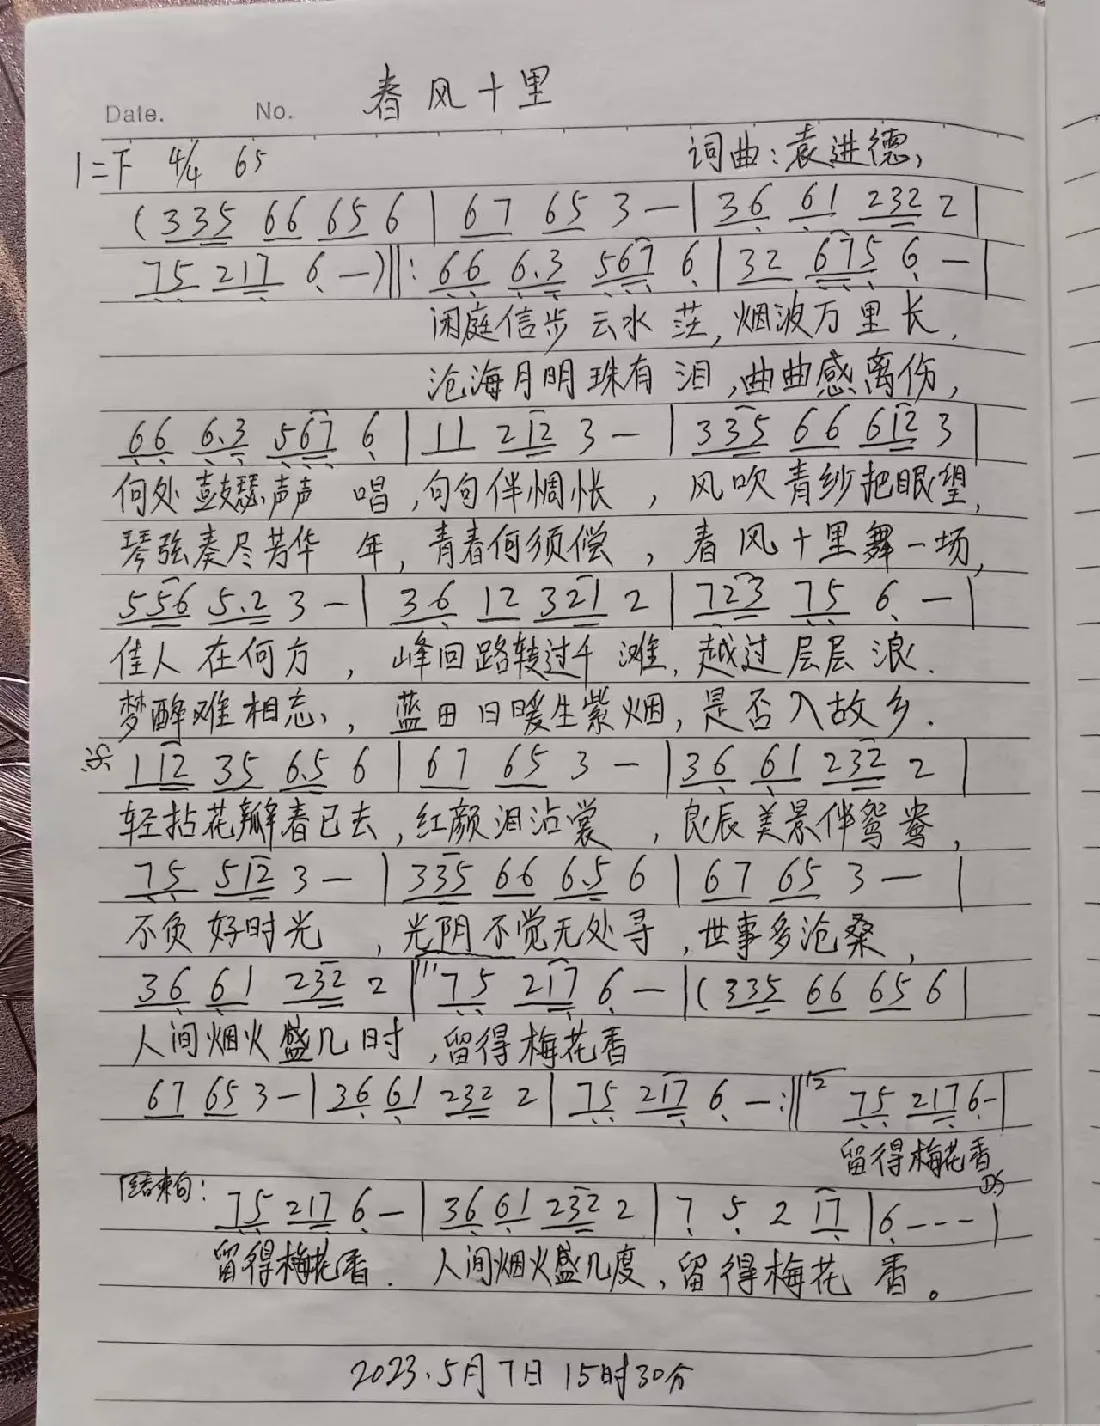 春风十里
Date. No.
1=F 4/4 65 词曲:袁进德
(335 66 65 6 | 67 65 3 — | 36 61 232 2 |
75 217 6 —)‖: 66 6.3 567 6 | 32 675 6 — |
闲庭信步云水茫,烟波万里长,
沧海月明珠有泪,曲曲感离伤,
66 6.3 567 6 | 11 212 3 — | 335 66 612 3 |
何处鼓瑟声声唱,句句伴惆怅,风吹青纱把眼望,
琴弦奏尽芳华年,青春何须偿,春风十里舞一场,
556 5.2 3 — | 36 12 321 2 | 723 75 6 — |
佳人在何方,峰回路转过千滩,越过层层浪.
梦醉难相忘,蓝田日暖生紫烟,是否入故乡.
112 35 6.5 6 | 67 65 3 — | 36 61 232 2 |
轻拈花瓣春已去,红颜泪沾裳,良辰美景伴鸳鸯,
75 512 3 — | 335 66 6.5 6 | 67 65 3 — |
不负好时光,光阴不觉无处寻,世事多沧桑,
36 61 232 2 | 75 217 6 — | (335 66 65 6 |
人间烟火盛几时,留得梅花香
67 65 3 — | 36 61 232 2 | 75 217 6 — :‖ 75 217 6 — |
留得梅花香
D.S
结束句: 75 217 6 — | 36 61 232 2 | 7 5 2 17 | 6 - - - |
留得梅花香. 人间烟火盛几度,留得梅花香。
2023.5月7日15时30分